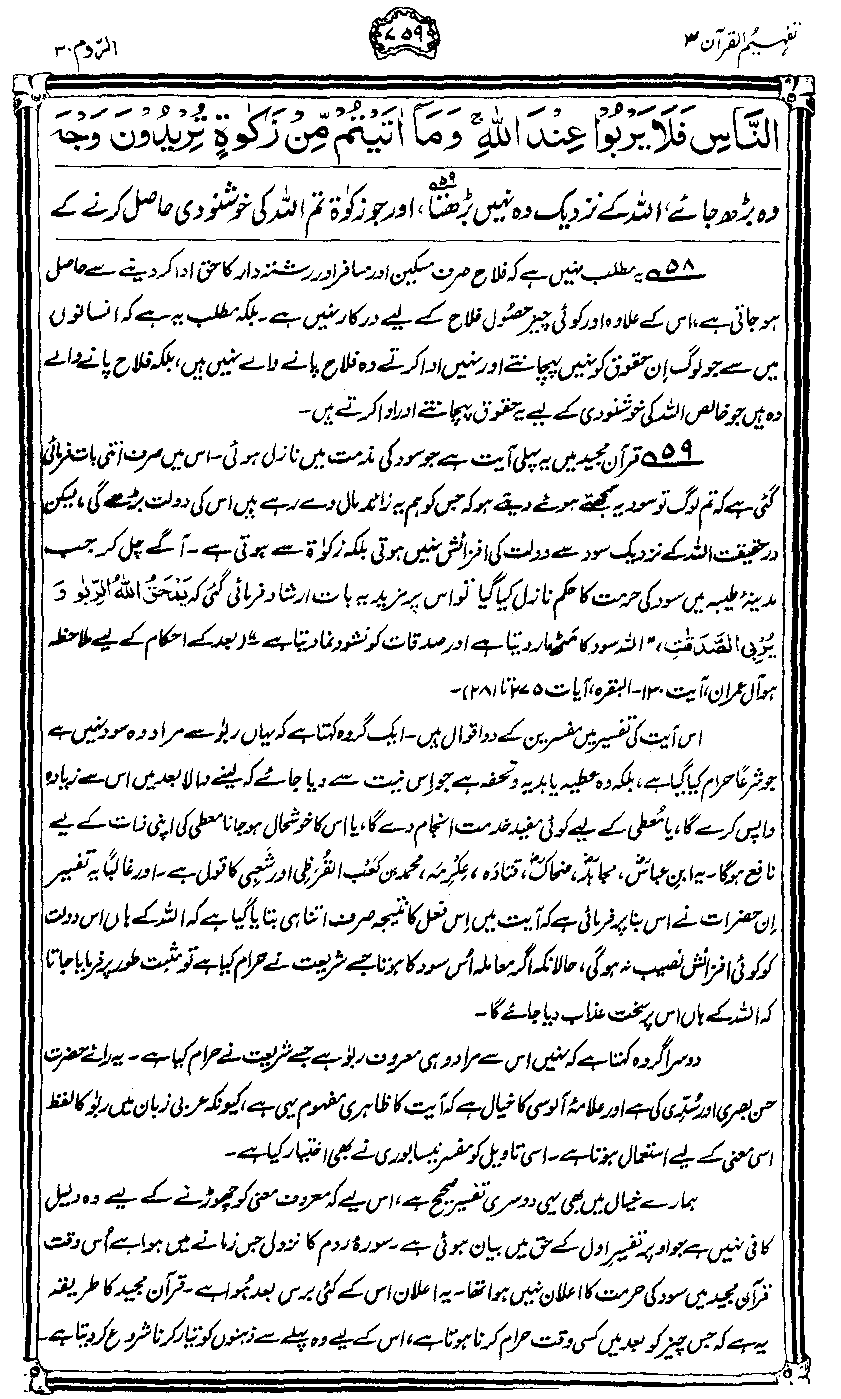 تفہیم القرآن ۳
۷۵۹
الرّوم ۳۰
النَّاسِ فَلَا يَرْبُوْا عِنْدَ اللّٰهِ ۚ وَمَاۤ اٰتَيْتُمْ مِّنْ زَكٰوةٍ تُرِيْدُوْنَ وَجْهَ
وہ بڑھ جائے، اللہ کے نزدیک وہ نہیں بڑھتا۵۹، اور جو زکوٰۃ تم اللہ کی خوشنودی حاصل کرنے کے
۵۸ یہ مطلب نہیں ہے کہ فلاح صرف مسکین اور مسافر اور رشتہ دار کا حق ادا کر دینے سے حاصل
ہو جاتی ہے، اس کے علاوہ اور کوئی چیز حصول فلاح کے لیے درکار نہیں ہے۔ بلکہ مطلب یہ ہے کہ انسانوں
میں سے جو لوگ اِن حقوق کو نہیں پہچانتے اور نہیں ادا کرتے وہ فلاح پانے والے نہیں ہیں، بلکہ فلاح پانے والے
وہ ہیں جو خالص اللہ کی خوشنودی کے لیے یہ حقوق پہچانتے اور ادا کرتے ہیں۔
۵۹ قرآن مجید میں یہ پہلی آیت ہے جو سود کی مذمت میں نازل ہوئی۔ اس میں صرف اتنی بات فرمائی
گئی ہے کہ تم لوگ تو سود یہ سمجھتے ہوئے دیتے ہو کہ جس کو ہم یہ زائد مال دے رہے ہیں اس کی دولت بڑھے گی، لیکن
درحقیقت اللہ کے نزدیک سود سے دولت کی افزائش نہیں ہوتی بلکہ زکوٰۃ سے ہوتی ہے۔ آگے چل کر جب
مدینۂ طیبہ میں سود کی حرمت کا حکم نازل کیا گیا تو اس پر مزید یہ بات ارشاد فرمائی گئی کہ يَمْحَقُ اللّٰهُ الرِّبٰوا وَ
يُرْبِي الصَّدَقٰتِ، "اللہ سود کا مَٹھ مار دیتا ہے اور صدقات کو نشوونما دیتا ہے" (بعد کے احکام کے لیے ملاحظہ
ہو آل عمران، آیت ۱۳۰۔ البقرہ، آیات ۲۷۵ تا ۲۸۱)۔
اس آیت کی تفسیر میں مفسرین کے دو اقوال ہیں۔ ایک گروہ کہتا ہے کہ یہاں ربوٰ سے مراد وہ سود نہیں ہے
جو شرعًا حرام کیا گیا ہے، بلکہ وہ عطیہ یا ہدیہ و تحفہ ہے جو اِس نیت سے دیا جائے کہ لینے والا بعد میں اس سے زیادہ
واپس کرے گا، یا مُعطی کے لیے کوئی مفید خدمت انجام دے گا، یا اس کا خوشحال ہو جانا معطی کی اپنی ذات کے لیے
نافع ہوگا۔ یہ ابن عباسؓ، مجاہدؒ، ضحاکؒ، قتادہ، عِکرِمہ، محمد بن کعب القُرَظی اور شَعبی کا قول ہے۔ اور غالبًا یہ تفسیر
اِن حضرات نے اس بنا پر فرمائی ہے کہ آیت میں اِس فعل کا نتیجہ صرف اتنا ہی بتایا گیا ہے کہ اللہ کے ہاں اس دولت
کو کوئی افزائش نصیب نہ ہوگی، حالانکہ اگر معاملہ اُس سود کا ہوتا جسے شریعت نے حرام کیا ہے تو مثبت طور پر فرمایا جاتا
کہ اللہ کے ہاں اس پر سخت عذاب دیا جائے گا۔
دوسرا گروہ کہتا ہے کہ نہیں اس سے مراد وہی معروف ربوٰ ہے جسے شریعت نے حرام کیا ہے۔ یہ رائے حضرت
حسن بصری اور سُدّی کی ہے اور علامہ آلوسی کا خیال ہے کہ آیت کا ظاہری مفہوم یہی ہے، کیونکہ عربی زبان میں ربوٰ کا لفظ
اسی معنی کے لیے استعمال ہوتا ہے۔ اسی تاویل کو مفسر نیسابوری نے بھی اختیار کیا ہے۔
ہمارے خیال میں بھی یہی دوسری تفسیر صحیح ہے، اس لیے کہ معروف معنی کو چھوڑنے کے لیے وہ دلیل
کافی نہیں ہے جو اوپر تفسیر اول کے حق میں بیان ہوئی ہے۔ سورۂ روم کا نزول جس زمانے میں ہوا ہے اُس وقت
قرآن مجید میں سود کی حرمت کا اعلان نہیں ہوا تھا۔ یہ اعلان اس کے کئی برس بعد ہُوا ہے۔ قرآن مجید کا طریقہ
یہ ہے کہ جس چیز کو بعد میں کسی وقت حرام کرنا ہوتا ہے، اس کے لیے وہ پہلے سے ذہنوں کو تیار کرنا شروع کر دیتا ہے۔